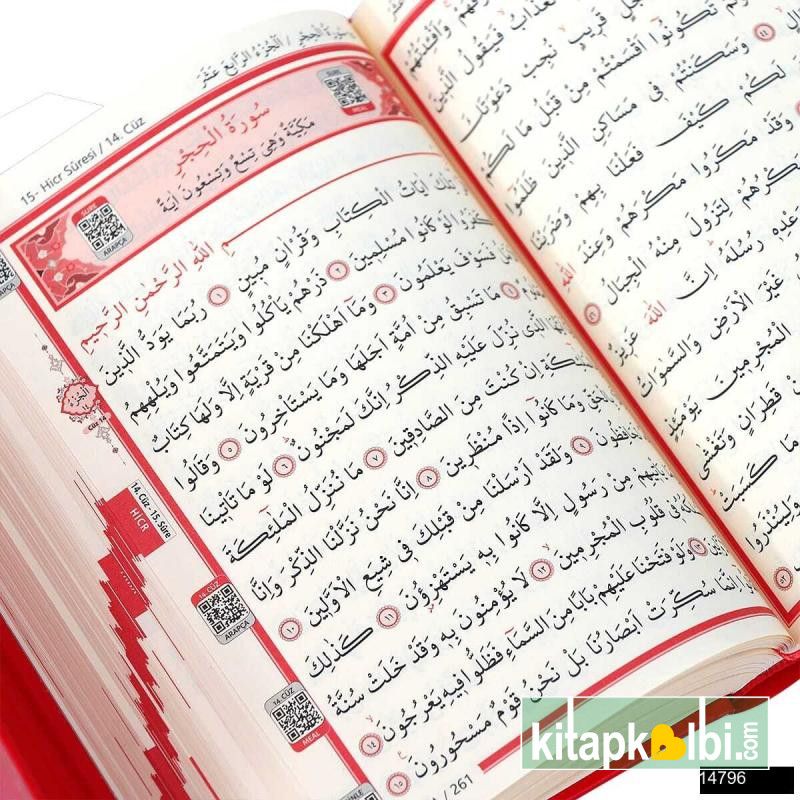 سُورَةُ الْحِجْرِ / اَلْجُزْءُ الرَّابِعَ عَشَرَ
15- Hicr Sûresi / 14. Cüz
SURE
MEAL
سُورَةُ الْحِجْرِ
مَكِّيَّةٌ وَهِيَ تِسْعٌ وَتِسْعُونَ اٰيَةً
SURE
ARAPÇA
اللّٰهِ الرَّحْمٰنِ الرَّحِيمِ
تِلْكَ اٰيَاتُ الْكِتَابِ وَقُرْاٰنٍ مُبِينٍ ١ رُبَمَا يَوَدُّ الَّذِينَ
كَفَرُوا لَوْ كَانُوا مُسْلِمِينَ ٢ ذَرْهُمْ يَأْكُلُوا وَيَتَمَتَّعُوا وَيُلْهِهِمُ
فَسَوْفَ يَعْلَمُونَ ٣ وَمَٓا اَهْلَكْنَا مِنْ قَرْيَةٍ اِلَّا وَلَهَا كِتَابٌ
مَا تَسْبِقُ مِنْ اُمَّةٍ اَجَلَهَا وَمَا يَسْتَأْخِرُونَ ٥ وَقَالُوا
الَّذِي نُزِّلَ عَلَيْهِ الذِّكْرُ اِنَّكَ لَمَجْنُونٌ ٦ لَوْ مَا تَأْتِينَا
اِنْ كُنْتَ مِنَ الصَّادِقِينَ ٧ مَا نُنَزِّلُ الْمَلٰٓئِكَةَ
وَمَا كَانُٓوا اِذًا مُنْظَرِينَ ٨ اِنَّا نَحْنُ نَزَّلْنَا الذِّكْرَ وَاِنَّا
٩ وَلَقَدْ اَرْسَلْنَا مِنْ قَبْلِكَ فِي شِيَعِ الْاَوَّلِينَ ١٠
مِنْ رَسُولٍ اِلَّا كَانُوا بِهٖ يَسْتَهْزِؤُ۫نَ ١١ كَذٰلِكَ
فِي قُلُوبِ الْمُجْرِمِينَ ١٢ لَا يُؤْمِنُونَ بِهٖ وَقَدْ خَلَتْ سُنَّةُ
١٣ وَلَوْ فَتَحْنَا عَلَيْهِمْ بَابًا مِنَ السَّمَٓاءِ فَظَلُّوا فِيهِ يَعْرُجُونَ ١٤
سُكِّرَتْ اَبْصَارُنَا بَلْ نَحْنُ قَوْمٌ مَسْحُورُونَ ١٥
Cüz 14
14. Cüz - 15. Sûre
HİCR
14. CÜZ
ARAPÇA
14. CÜZ
MEAL
/ 261
قَرِيبٍ نُجِبْ دَعْوَتَكَ
تَكُونُٓوا اَقْسَمْتُمْ مِنْ قَبْلُ مَا لَكُمْ
وَسَكَنْتُمْ فِي مَسَاكِنِ الَّذِينَ ظَلَمُٓوا
لَكُمْ كَيْفَ فَعَلْنَا بِهِمْ وَضَرَبْنَا
وَقَدْ مَكَرُوا مَكْرَهُمْ وَعِنْدَ اللّٰهِ
مَكْرُهُمْ لِتَزُولَ مِنْهُ الْجِبَالُ
رُسُلَهُ اِنَّ اللّٰهَ عَزِيزٌ
غَيْرَ الْاَرْضِ وَالسَّمٰوَاتُ
الْمُجْرِمِينَ يَوْمَئِذٍ
قَطِرَانٍ وَتَغْشٰى
مَا كَسَبَتْ
وَلِيُنْذَرُوا
kitapkalbi.com
14796